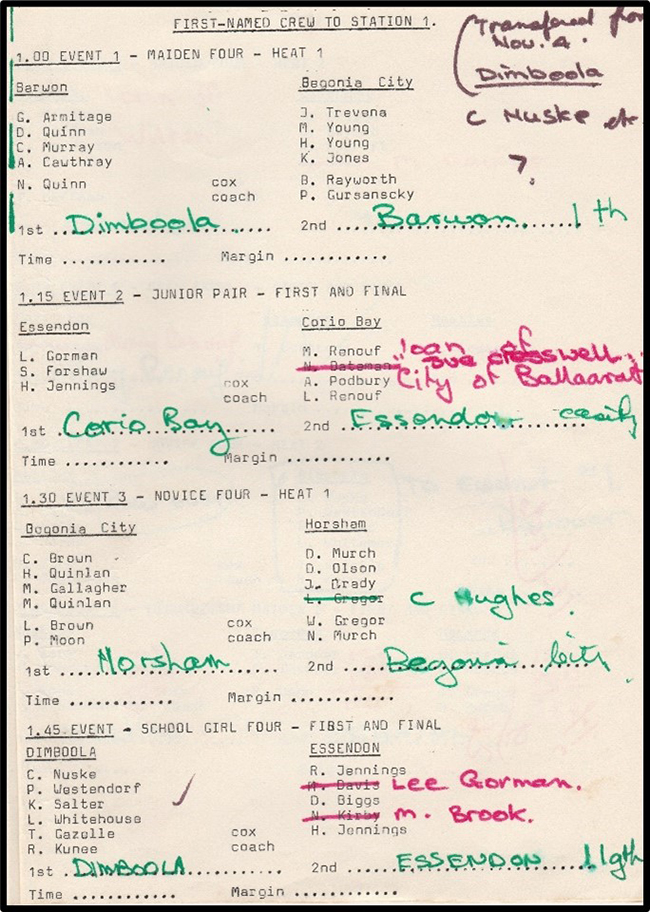 FIRST-NAMED CREW TO STATION 1.
(Transfered from
Nov. 4.
Dimboola
C Nuske etc
?
1.00 EVENT 1 - MAIDEN FOUR - HEAT 1
Barwon Begonia City
G. Armitage J. Trevena
D. Quinn M. Young
C. Murray H. Young
A. Cawthray K. Jones
N. Quinn cox B. Rayworth
coach P. Gursanscky
1st Dimboola 2nd Barwon 1 th
Time ............ Margin ............
1.15 EVENT 2 - JUNIOR PAIR - FIRST AND FINAL
Essendon Corio Bay
L. Gorman M. Renouf loan of
S. Forshaw N. Bateman Sue Cresswell
H. Jennings cox A. Podbury City of Ballaarat
coach L. Renouf
1st Corio Bay 2nd Essendon easily
Time ............ Margin ............
1.30 EVENT 3 - NOVICE FOUR - HEAT 1
Begonia City Horsham
C. Brown D. Murch
H. Quinlan D. Olson
M. Gallagher J. Brady
M. Quinlan L. Gregor C Hughes.
L. Brown cox W. Gregor
P. Moon coach N. Murch
1st Horsham 2nd Begonia City
Time ............ Margin ............
1.45 EVENT - SCHOOL GIRL FOUR - FIRST AND FINAL
DIMBOOLA ESSENDON
C. Nuske R. Jennings
P. Westendorf Davis Lee Gorman.
K. Salter D. Biggs
L. Whitehouse N. Kirby M. Brook.
T. Gazelle cox H. Jennings
R. Kunee coach
1st DIMBOOLA 2nd ESSENDON 1 lgth
Time ............ Margin ............